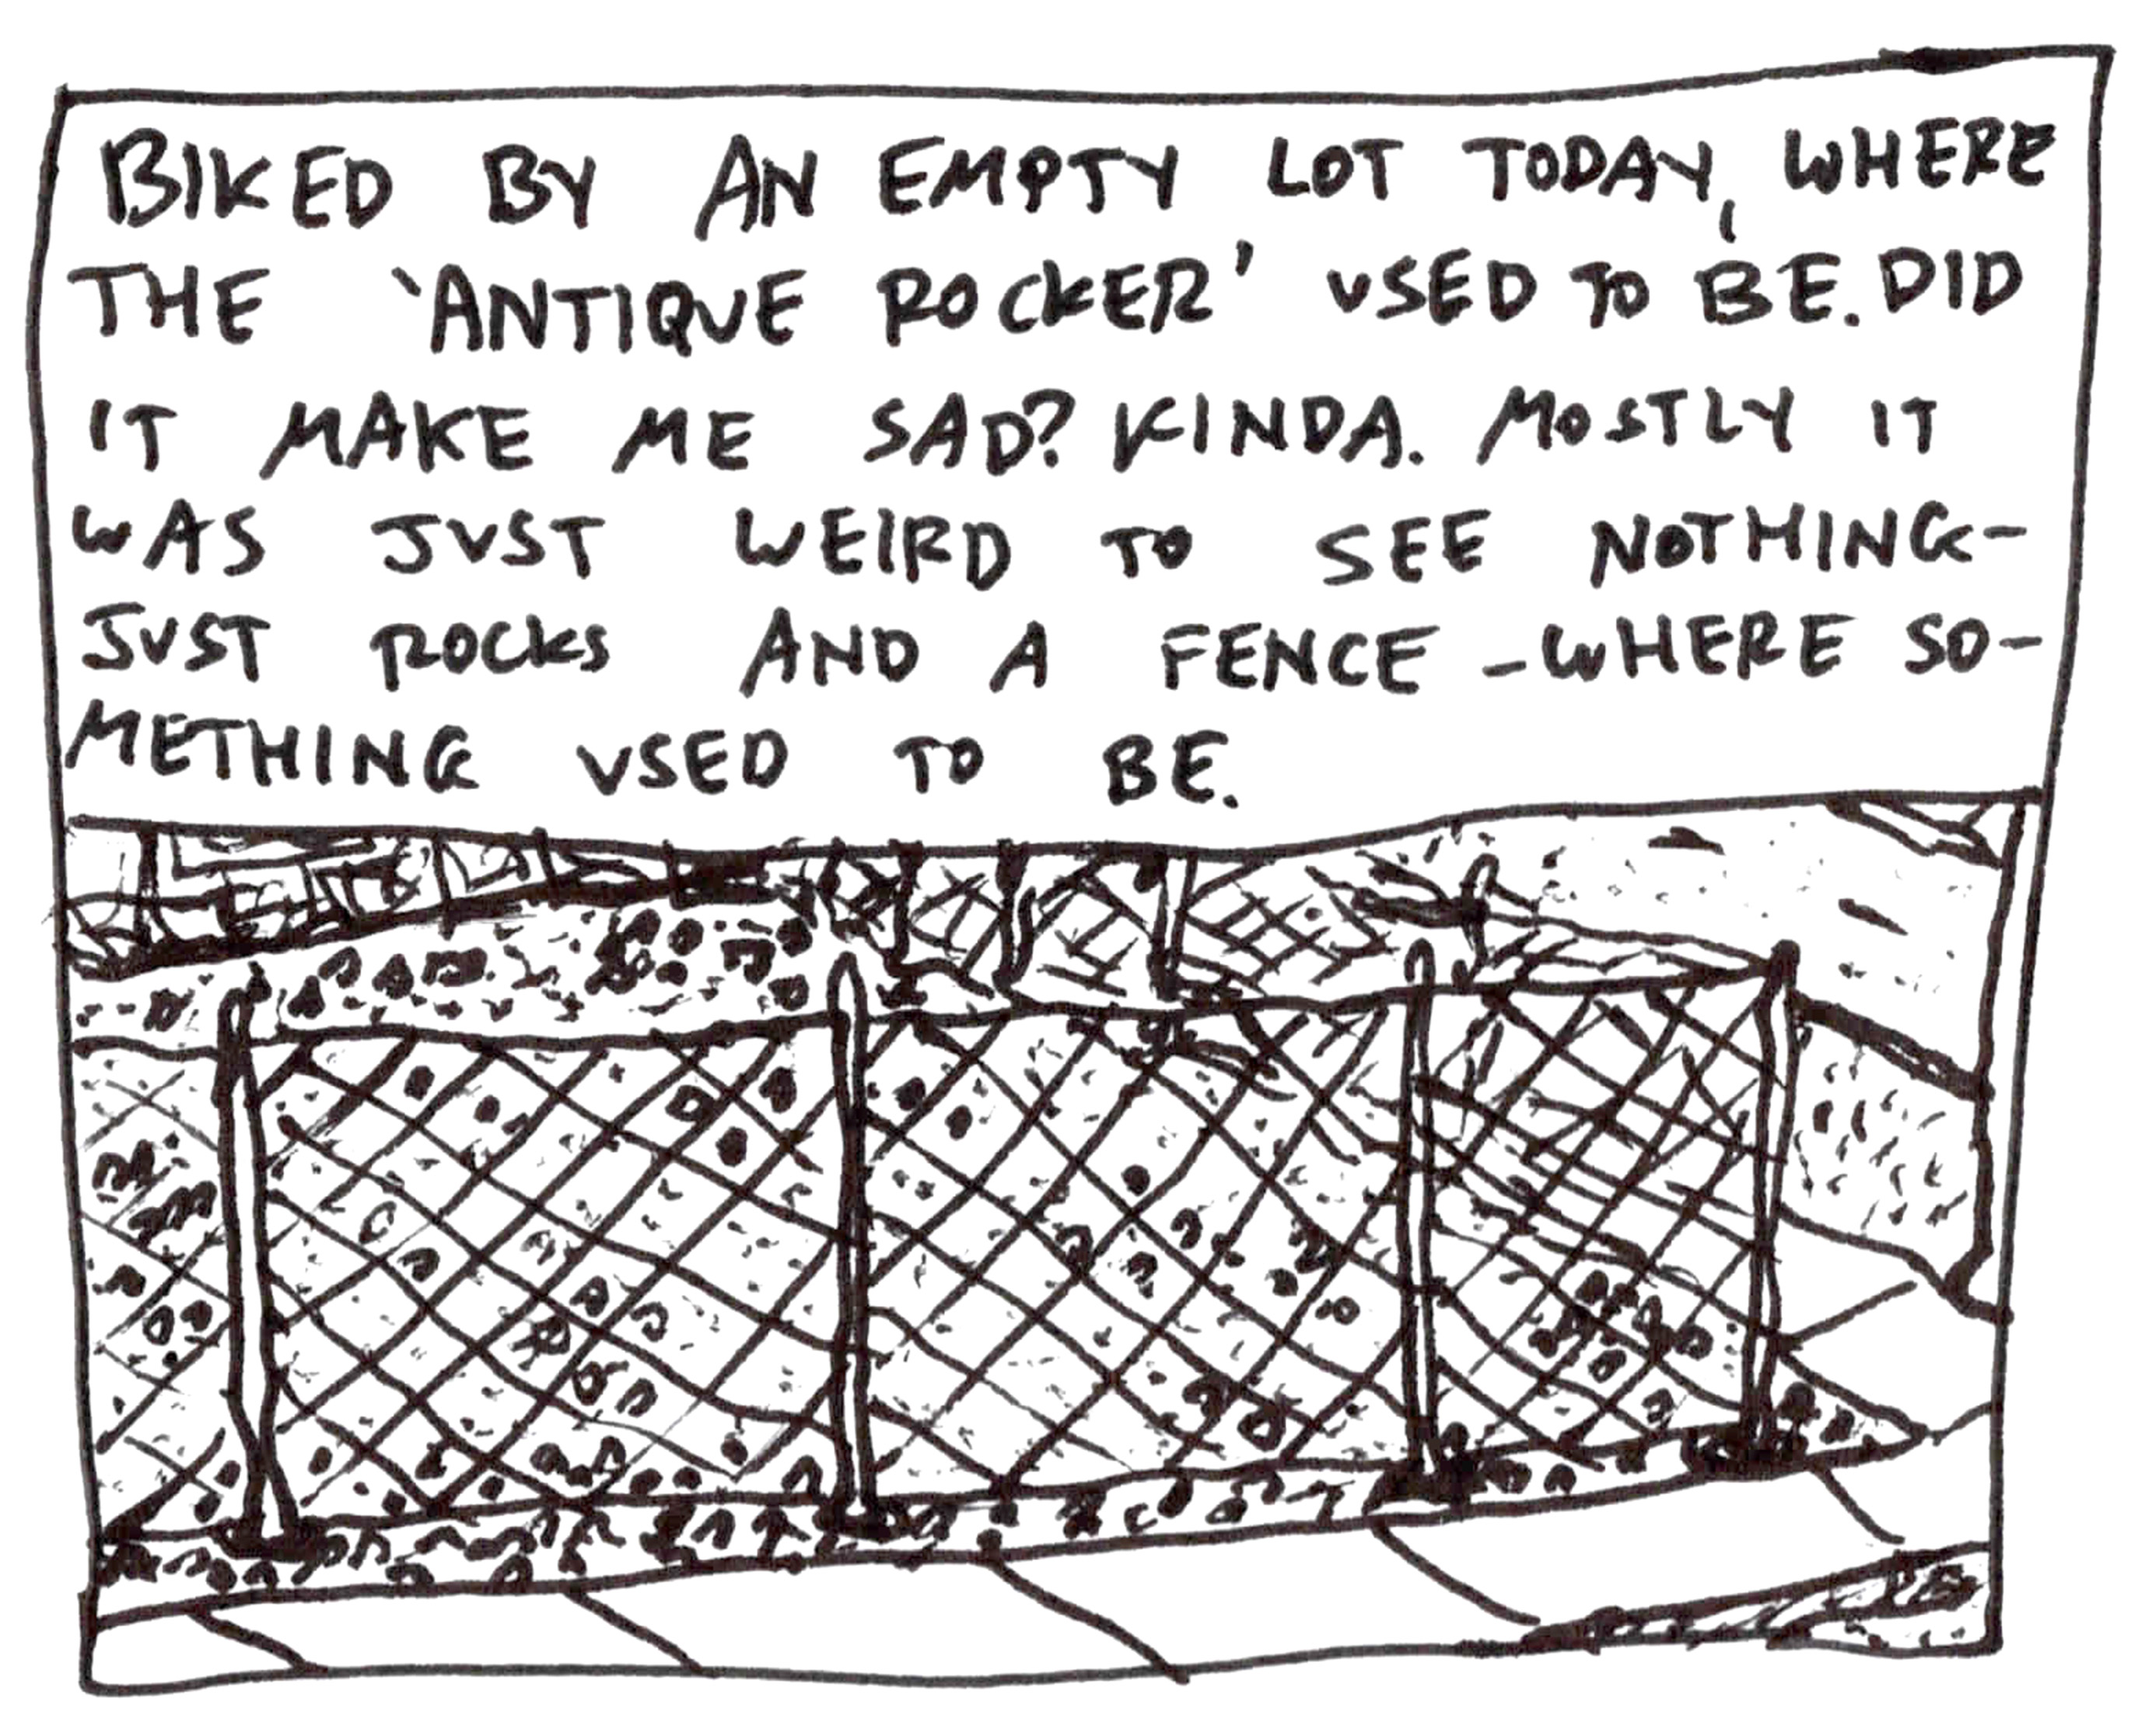 BIKED BY AN EMPTY LOT TODAY, WHERE
THE 'ANTIQUE ROCKER' USED TO BE. DID
IT MAKE ME SAD? KINDA. MOSTLY IT
WAS JUST WEIRD TO SEE NOTHING-
JUST ROCKS AND A FENCE -WHERE SO-
METHING USED TO BE.